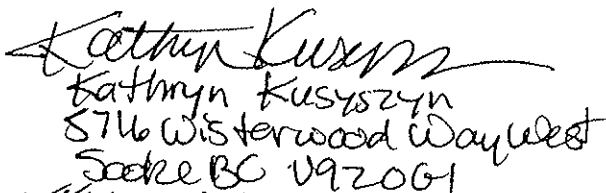 Kathryn Kusyszyn
Kathryn Kusyszyn
5716 Wisterwood Way West
Sooke BC V9Z0G1